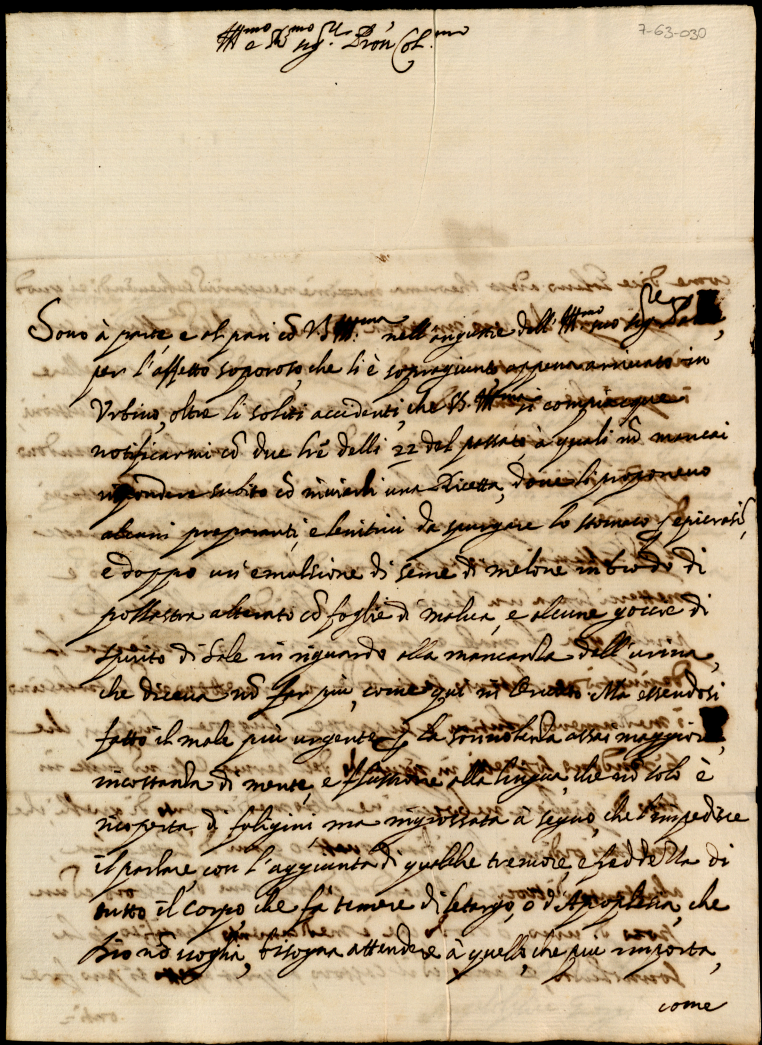 7-63-030
Ill.mo e Sig.re Pron Col.mo
Sono à parte, e al pari cō VS Ill.ma nell'angustie dell'Ill.mo suo Sig.re
per l'affetto soporoso, che li è sopragiunto appena arrivato in
Urbino, oltre li soliti accidenti, che VS. Ill.ma si compiacque
notificarmi cō due lre delli 22 del passato, à quali nō mancai
rispondere subito cō inviarli una Ricetta, dove li proponevo
alcuni preparanti, e lenitivi da spurgare lo stomaco p epicrasī,
e doppo un'emulsione di seme di melone in brodo di
pollastra alterato cō foglie di malva, e alcune goccie di
spirito di sale in riguardo alla mancanza dell'urina,
che diceva nō far più, come qui Ma essendosi
fatto il male più urgente p la sonnolenza assai maggiore,
incostanza di mente, e flussione alla lingua, che nō solo è
ricoperta di fuligini ma ingrossata à segno, che l'impedisce
il parlare, con l'aggiunta di qualche tremore, e freddezza di
tutto il corpo, che fà temere di letargo, o d'Apoplesia, che
Dio nō voglia, bisogna attendere à quello, che più importa,
come